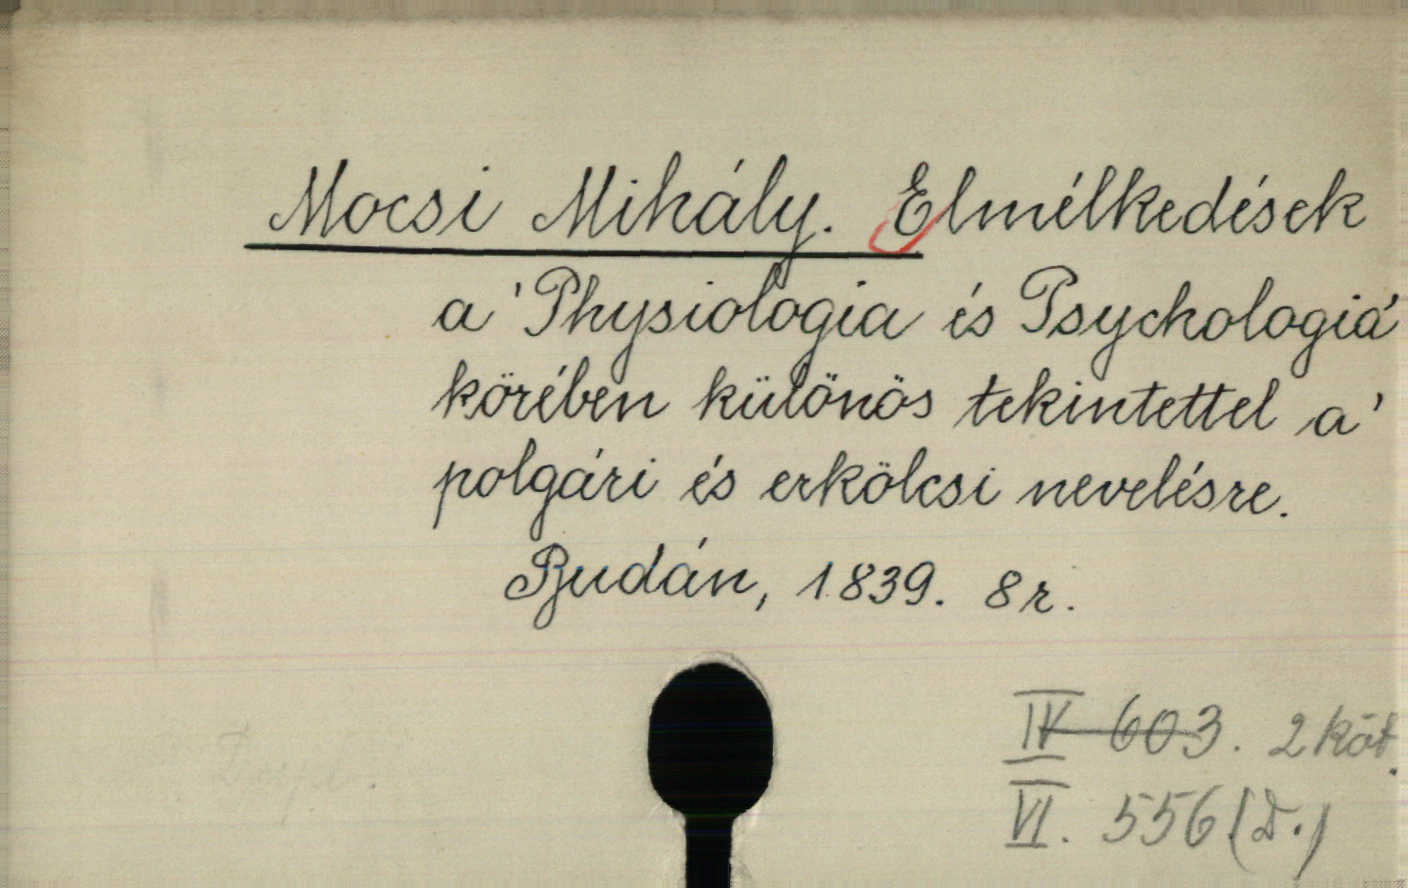 Mocsi Mihály. Elmélkedések
a' Physiologia és Psychologiá
körében különös tekintettel a'
polgári és erkölcsi nevelésre.
Budán, 1839. 8r.
IV 603. 2 köt.
VI. 556 (D.)